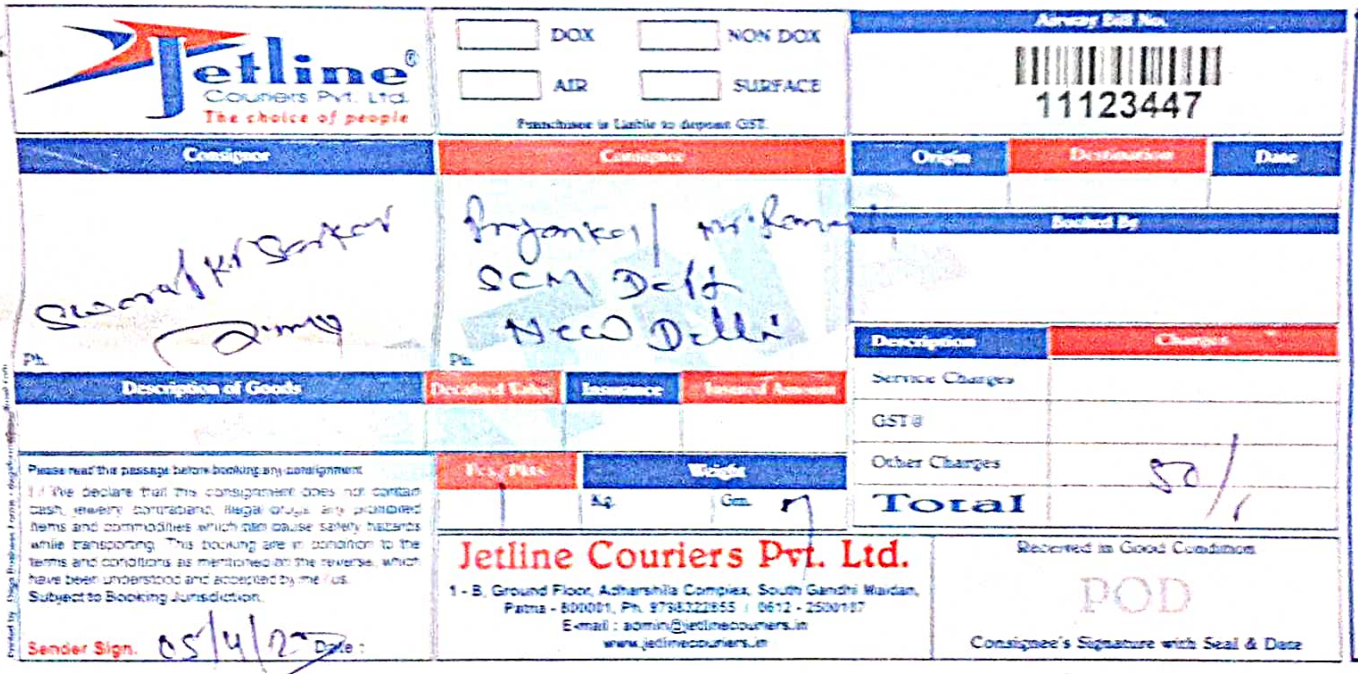 Jetline®
Couriers Pvt. Ltd.
The choice of people
DOX
NON DOX
AIR
SURFACE
Franchisee is Liable to deposit GST.
Airway Bill No.
11123447
Consignor
Consignee
Origin
Destination
Date
Sarkar
SCM
New Delhi
Ph.
Ph.
Booked By
Description
Charges
Service Charges
GST@
Other Charges
Total
50/
Description of Goods
Declared Value
Insurance
Insured Amount
Pcs./Pkts
Weight
1
Kg.
Gm.
Please read this passage before booking any consignment
I / We declare that this consignment does not contain
cash, jewelry contraband, illegal drugs, any prohibited
items and commodities which can cause safety hazards
while transporting. This booking are in condition to the
terms and conditions as mentioned on the reverse, which
have been understood and accepted by me / us.
Subject to Booking Jurisdiction.
Sender Sign. 05/4/2 Date :
Jetline Couriers Pvt. Ltd.
1 - B, Ground Floor, Adharshila Complex, South Gandhi Maidan,
Patna - 800001, Ph. 9798322855 / 0612 - 2500187
E-mail : admin@jetlinecouriers.in
www.jetlinecouriers.in
Received in Good Condition
POD
Consignee's Signature with Seal & Date